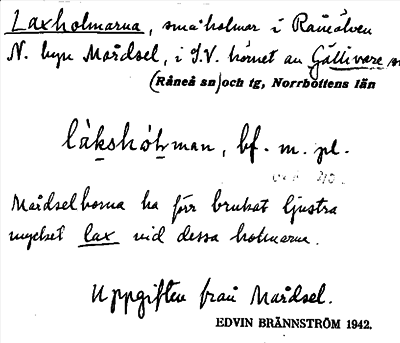 Laxholmarna, småholmar i Råneälven
N. byn Mårdsel, i S.V. hörnet av Gällivare sn
(Råneå sn) och tg, Norrbottens län
låkshòl̥man, bf. m. pl.
Mårdselborna ha förr brukat ljustra
mycket lax vid dessa holmarna.
Uppgiften från Mårdsel.
EDVIN BRÄNNSTRÖM 1942.